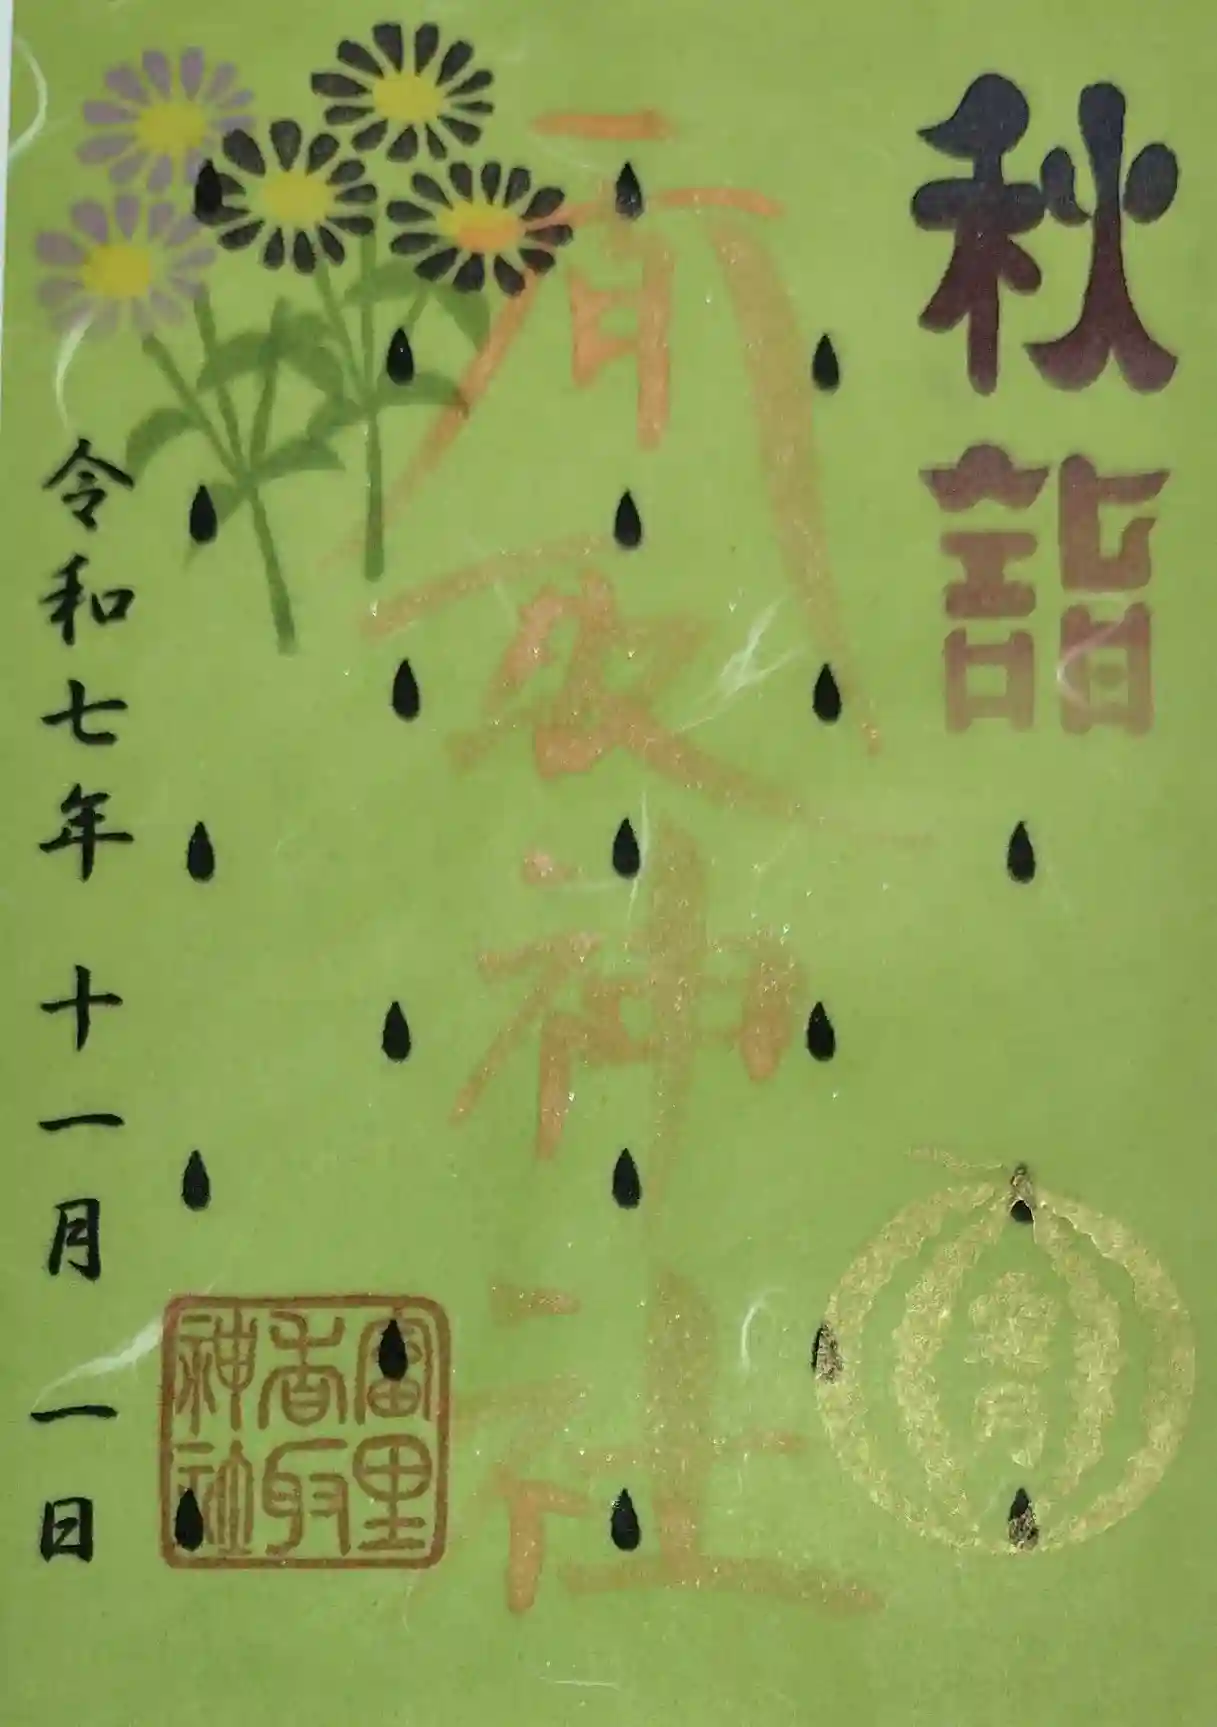 秋詣
霜月
香取神社
富里
香取
神社
令和七年 十一月 一日